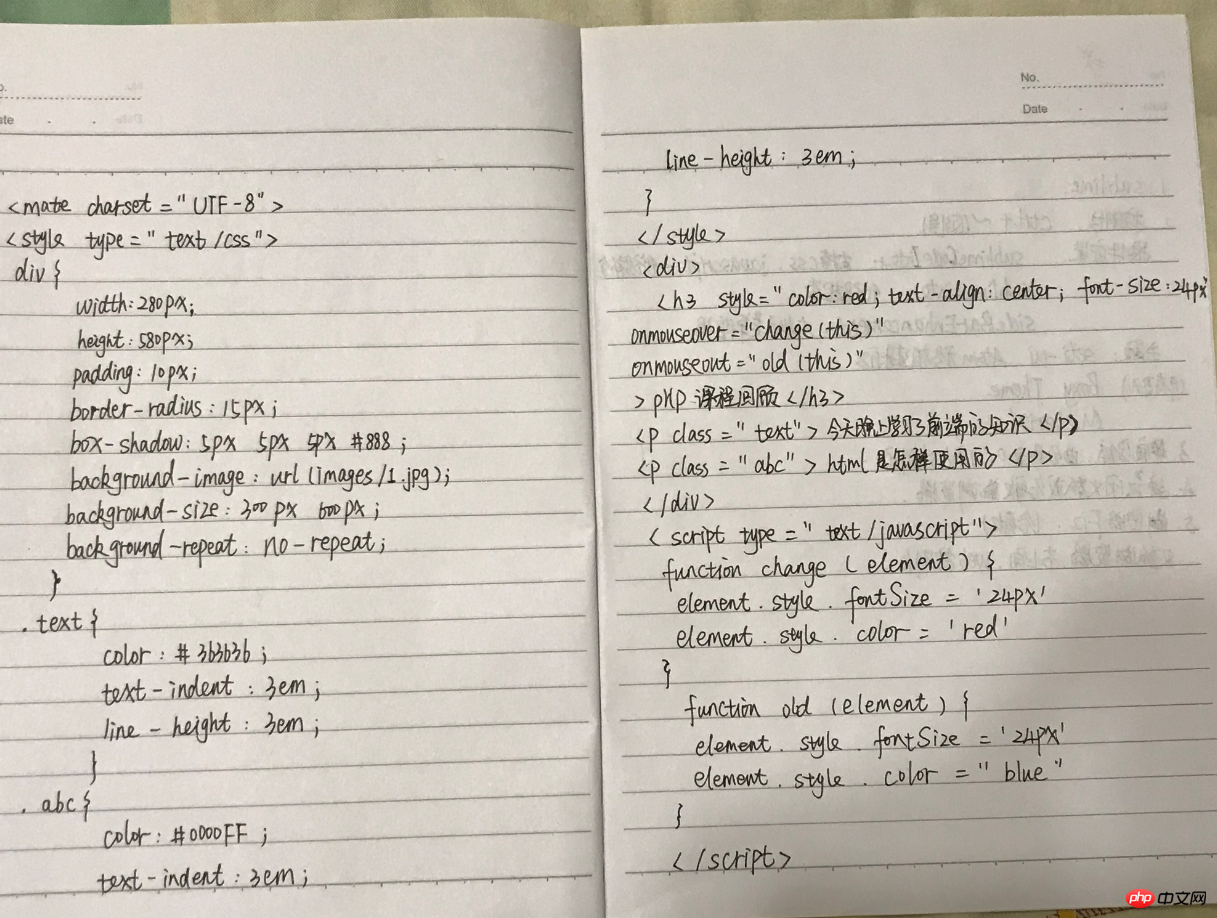 <mate charset="UTF-8">
<style type="text/css">
div{
width:280px;
height:580px;
padding:10px;
border-radius:15px;
box-shadow:5px 5px 5px #888;
background-image:url(images/1.jpg);
background-size:300px 600px;
background-repeat:no-repeat;
}
.text{
color:#3b3b3b;
text-indent:3em;
line-height:3em;
}
.abc{
color:#0000FF;
text-indent:3em;
No.
Date
line-height:3em;
}
</style>
<div>
<h3 style="color:red;text-align:center;font-size:24px"
onmouseover="change(this)"
onmouseout="old(this)"
>PHP课程回顾</h3>
<p class="text">今天晚上学习了前端的知识</p>
<p class="abc">html是怎样使用的</p>
</div>
<script type="text/javascript">
function change(element){
element.style.fontSize='24px'
element.style.color='red'
}
function old(element){
element.style.fontSize='24px'
element.style.color="blue"
}
</script>
php 中文网